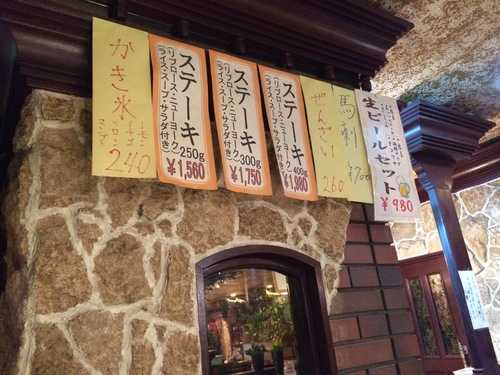 かき氷
レモン
イチゴ
メロン
240
ステーキ
(リブロース・ニューヨーク)
(ライス・スープ・サラダ付き)
250g
¥1,560
ステーキ
(リブロース・ニューヨーク)
(ライス・スープ・サラダ付き)
300g
¥1,750
ステーキ
(リブロース・ニューヨーク)
(ライス・スープ・サラダ付き)
400g
¥1,980
ぜんざい
260
馬刺
¥700
生ビールセット
¥980